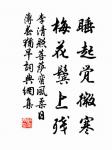 睡起觉微寒
梅花鬓上残
李清照菩萨蛮风柔日
薄春犹早词典网集